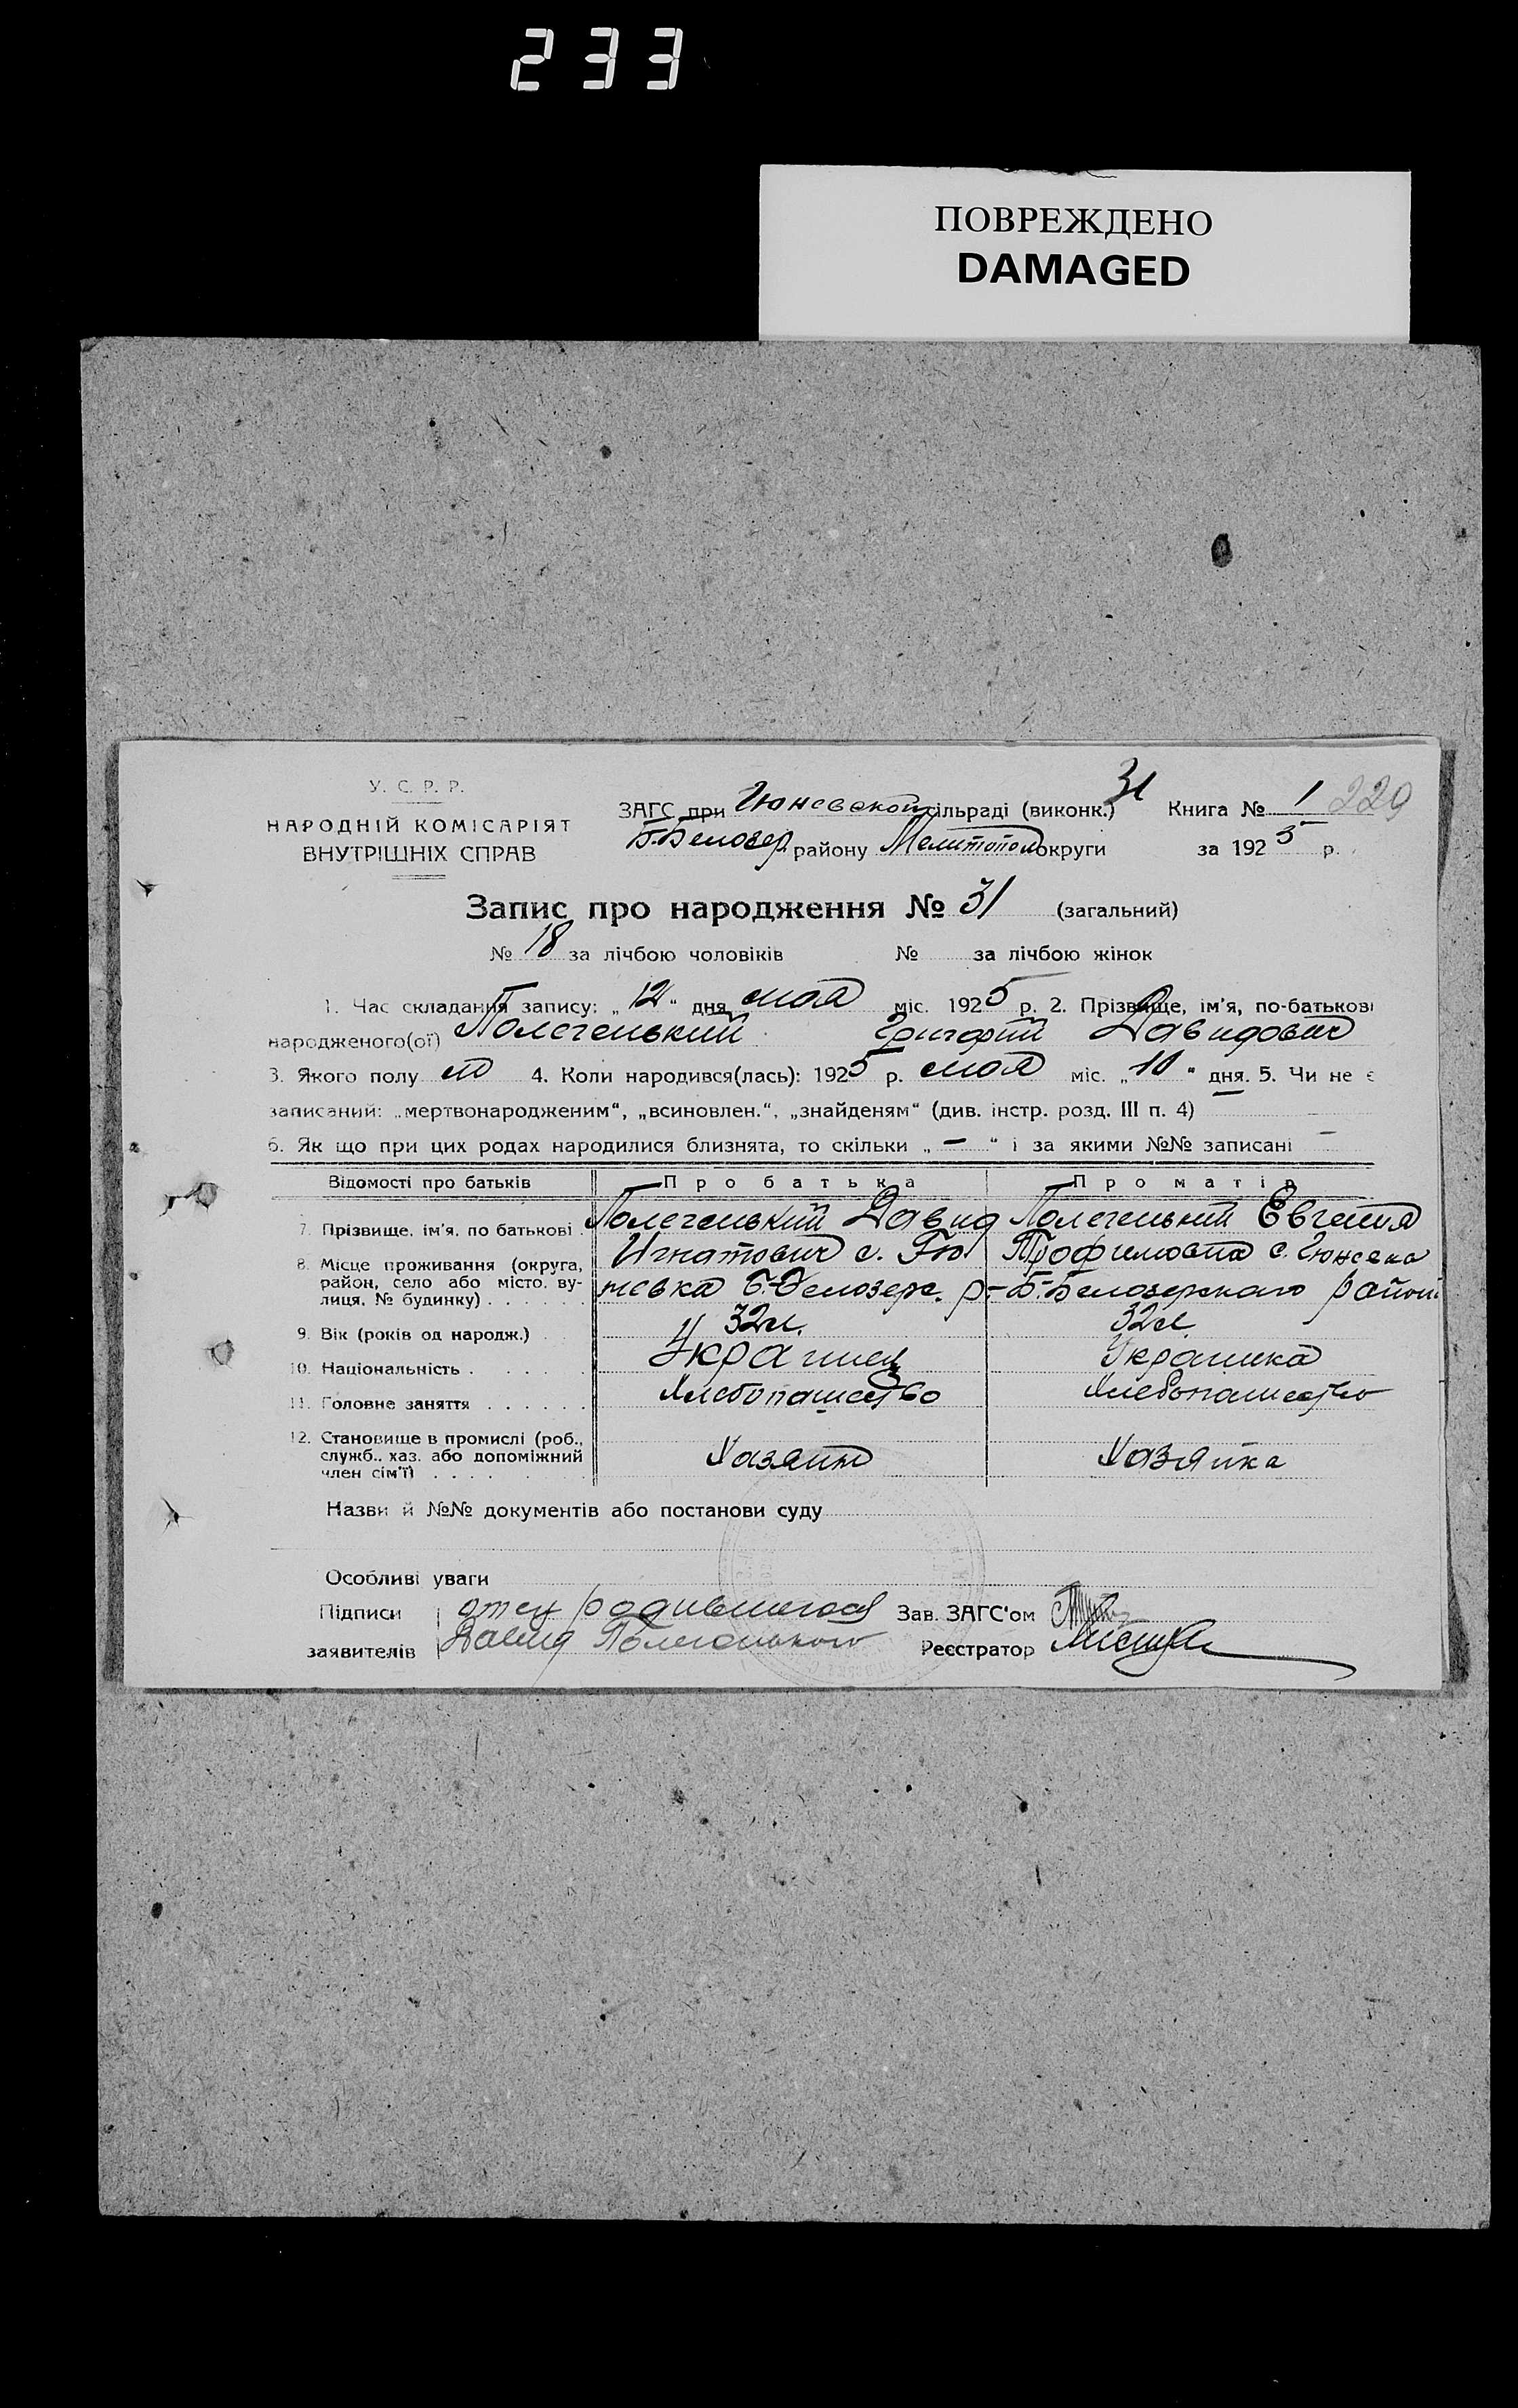 233
ПОВРЕЖДЕНО
DAMAGED
31
У. С. Р. Р.
НАРОДНІЙ КОМІСАРІЯТ
ВНУТРІШНІХ СПРАВ
ЗАГС при Гюневской сільраді (виконк.) Книга № 1 229
Б.Белозер. району Мелитопол округи за 1925 р.
Запис про народження № 31 (загальний)
№ 18 за лічбою чоловіків № за лічбою жінок
1. Час складання запису: „12“ дня мая міс. 1925 р. 2. Прізвище, ім'я, по-батькові
народженого(ої) Полегенький Григорий Давидович
3. Якого полу м 4. Коли народився(лась): 1925 р. мая міс. „10“ дня. 5. Чи не є
записаний: „мертвонародженим“, „всиновлен.“, „знайденям“ (див. інстр. розд. III п. 4)
6. Як що при цих родах народилися близнята, то скільки „—“ і за якими №№ записані —
Відомості про батьків Про батька Про матір
7. Прізвище, ім'я, по батькові . Полегенький Давид Полегенький Евгения
Игнатович с. Гю Трофимовна с. Гюневка
8. Місце проживання (округа,
район, село або місто, ву-
лиця, № будинку) . . . . . . невка Б.-Белозерс. р- Б.-Белозерского район
9. Вік (років од народж.) 32 л. 32 л.
10. Національність . . . . . Украинец Украинка
11. Головне заняття . . . . . . Хлебопашество Хлебопашество
12. Становище в промислі (роб.,
служб., хаз. або допоміжний
член сім'ї) . . . . Хазяин Хазяйка
Назви й №№ документів або постанови суду
Особливі уваги
Підписи отец родившегося Зав. ЗАГС'ом
заявителів Давид Полегенького Реєстратор